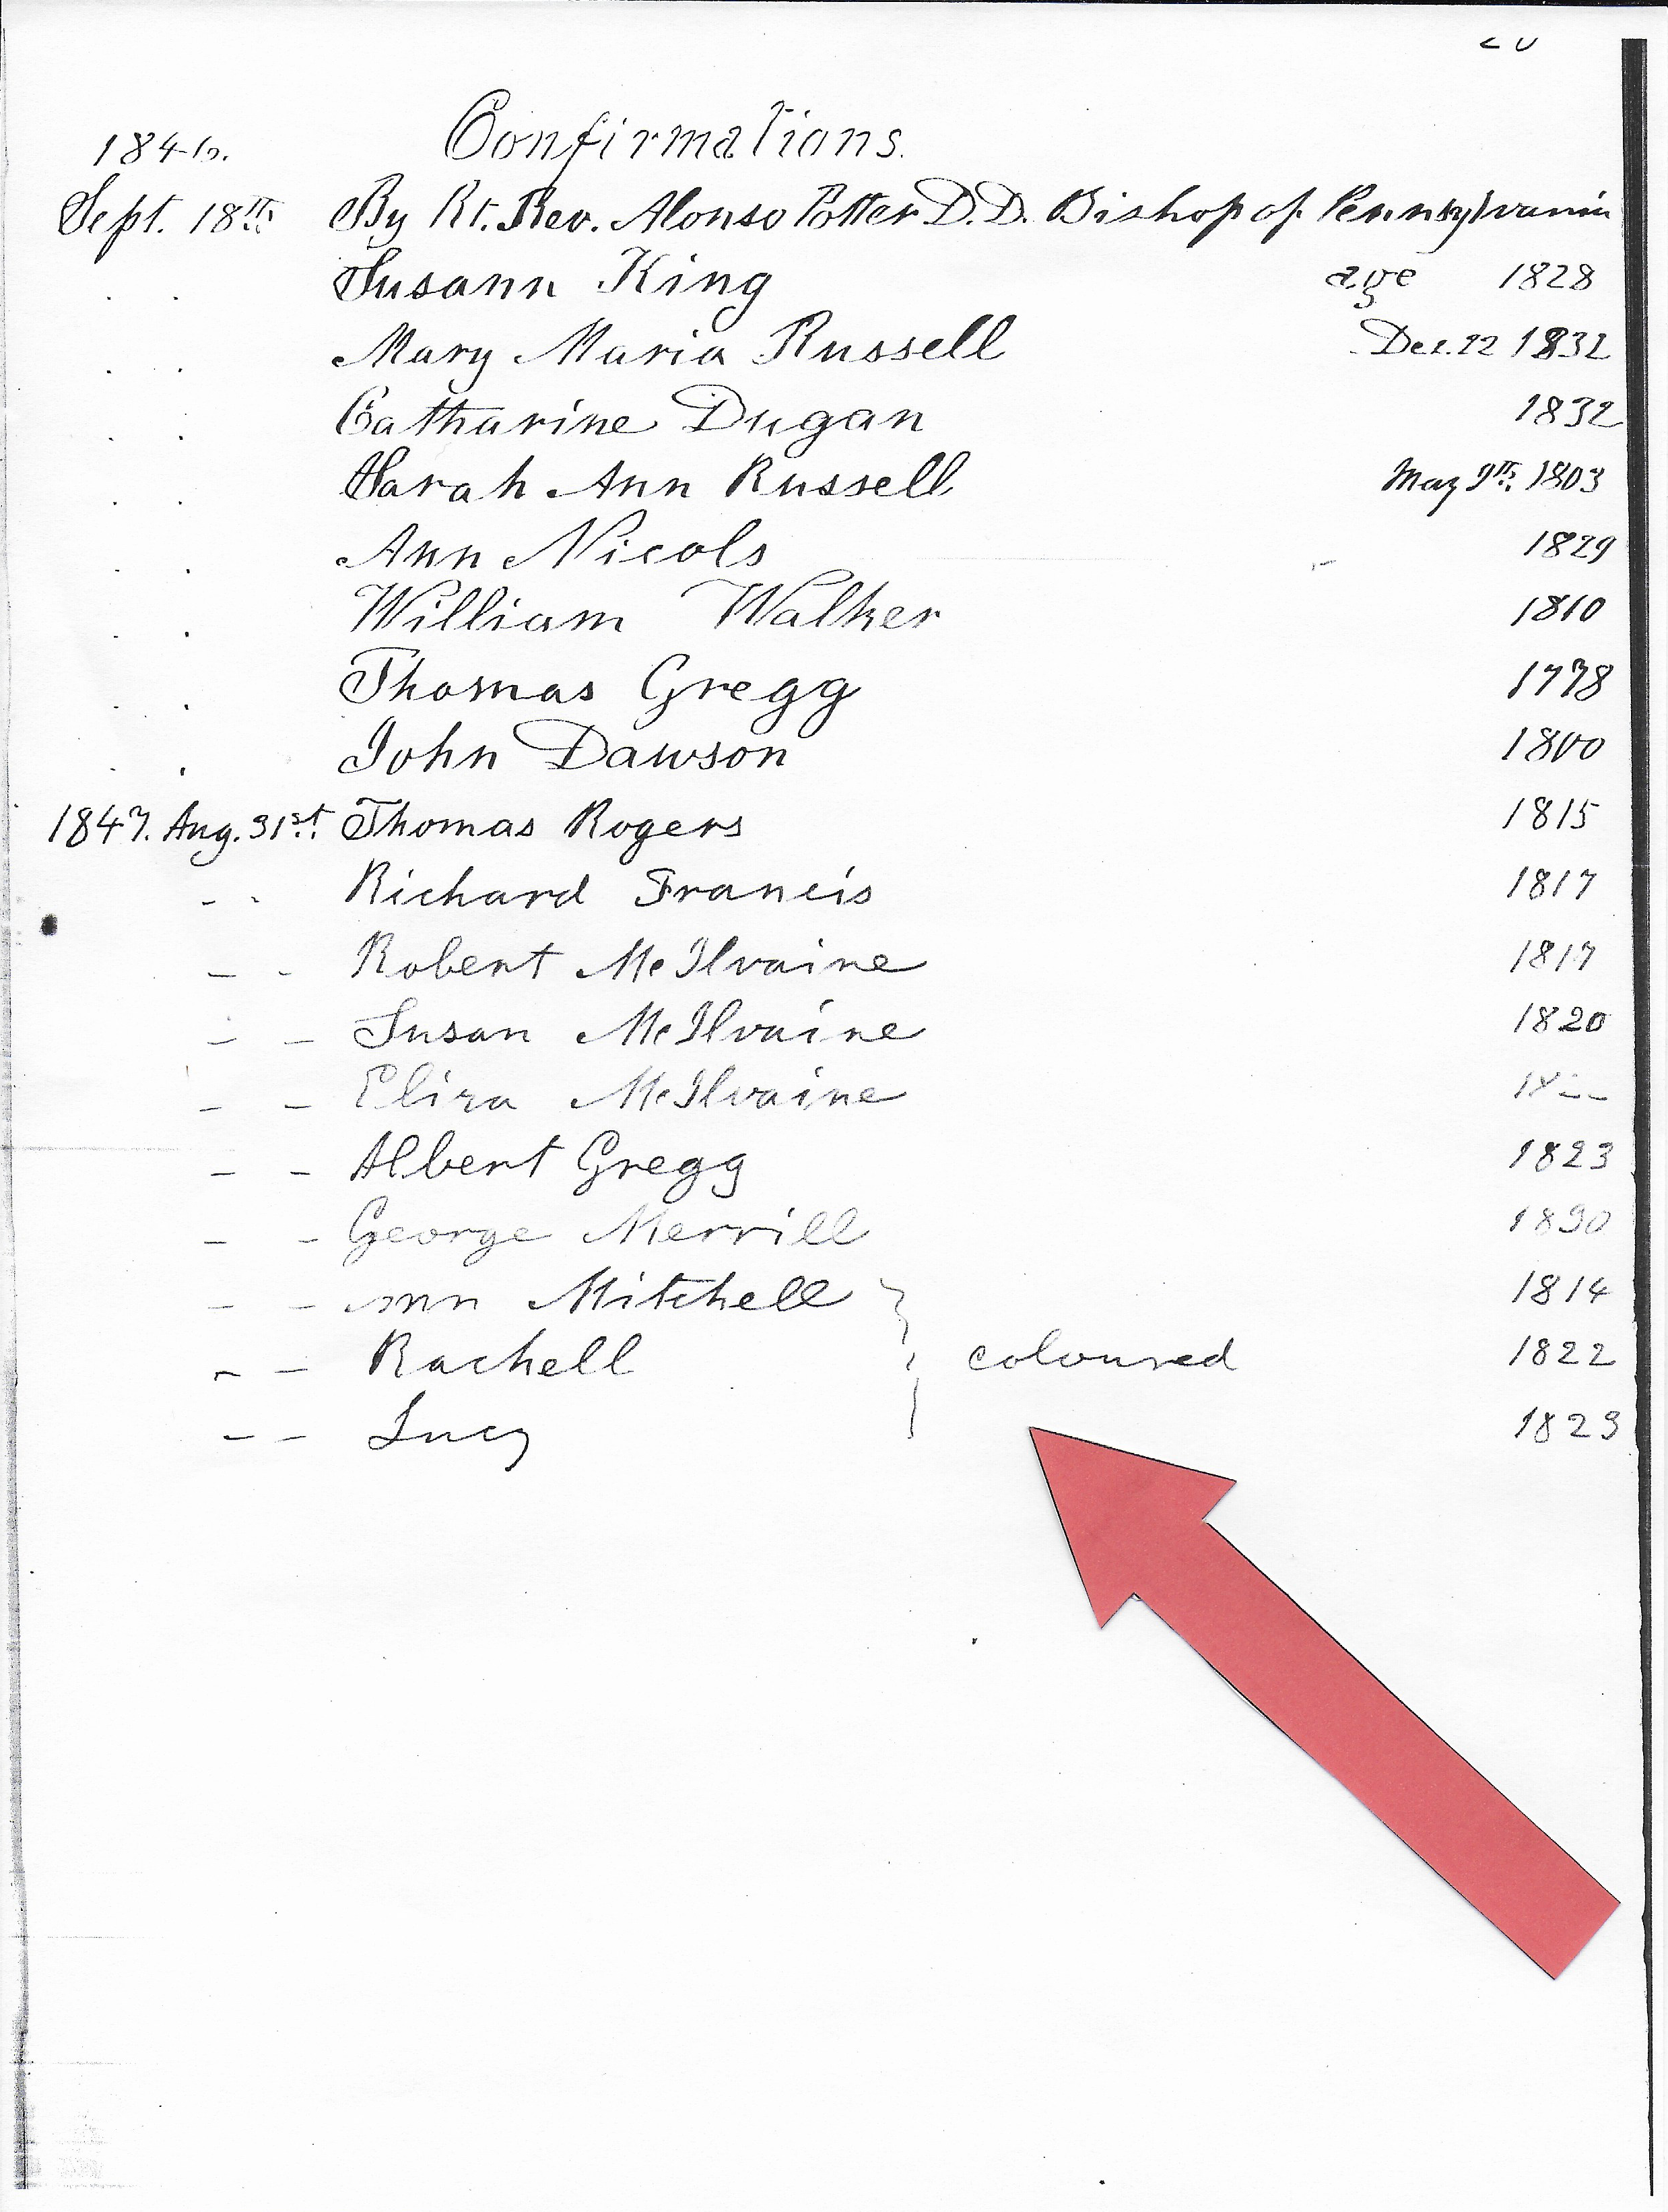 Confirmations.
1846.
Sept. 18th By Rt. Rev. Alonso Potter D.D. Bishop of Pennsylvania
Susann King age 1828
Mary Maria Russell Dec. 22 1832
Catharine Dugan 1832
Sarah Ann Russell May 9th 1803
Ann Nicols 1829
William Walker 1810
Thomas Gregg 1778
John Dawson 1800
1847. Aug. 31st Thomas Rogers 1815
- - Richard Francis 1817
- - Robert McIlvaine 1817
- - Susan McIlvaine 1820
- - Eliza McIlvaine 18--
- - Albert Gregg 1823
- - George Merrill 1830
- - Ann Mitchell 1814
- - Rachell } coloured 1822
- - Lucy 1823